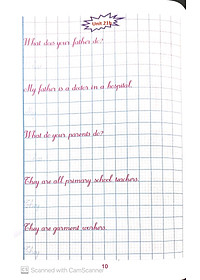 What does your father do?
My father is a doctor in a hospital.
What do your parents do?
They are all primary school teachers.
They
They are garment workers.
They
10
Scanned with CamScanner